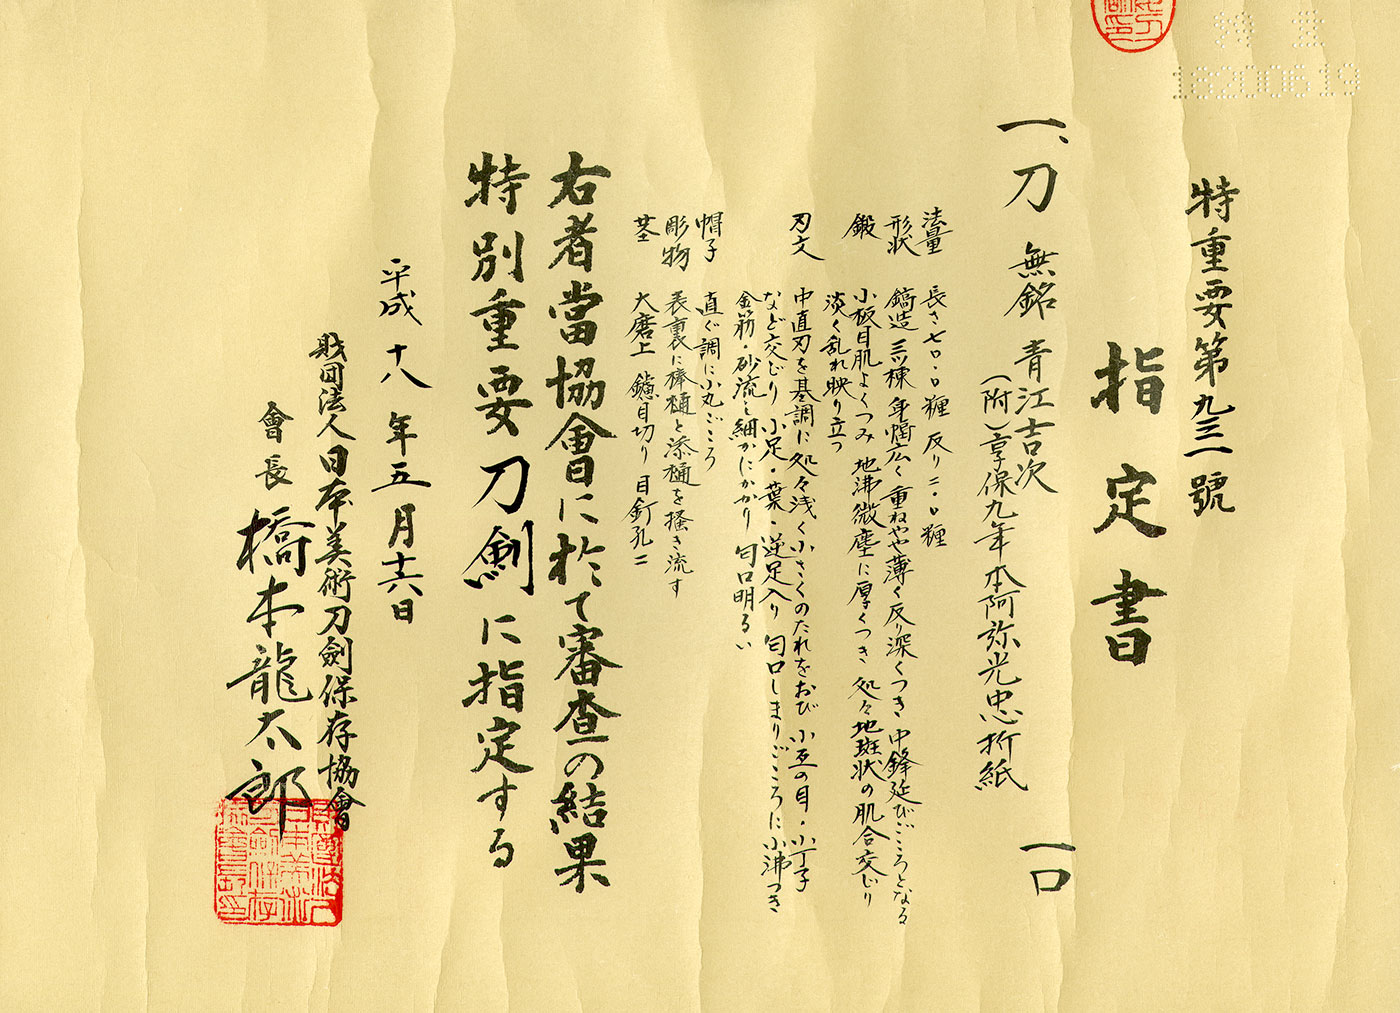 特重要第九三一號
指定書
一、刀 無銘 青江吉次 一口
(附)享保九年本阿弥光忠折紙
法量 長さ七〇・〇糎 反り二・〇糎
形状 鎬造 三ツ棟 身幅広く 重ねやや薄く 反り深くつき 中鋒延びごころとなる
鍛 小板目肌よくつみ 地沸微塵に厚くつき 処々地斑状の肌合交じり
淡く乱れ映り立つ
刃文 中直刃を基調に処々浅く小さくのたれをおび 小互の目・小丁子
など交じり 小足・葉・逆足入り 匂口しまりごころに小沸つき
金筋・砂流し細かにかかり 匂口明るい
帽子 直ぐ調に小丸ごころ
彫物 表裏に棒樋と添樋を掻き流す
茎 大磨上 鑢目切り 目釘孔二
右者當協會に於て審査の結果
特別重要刀劍に指定する
平成十八年五月十六日
財団法人日本美術刀劍保存協會
會長 橋本龍太郎
18200619